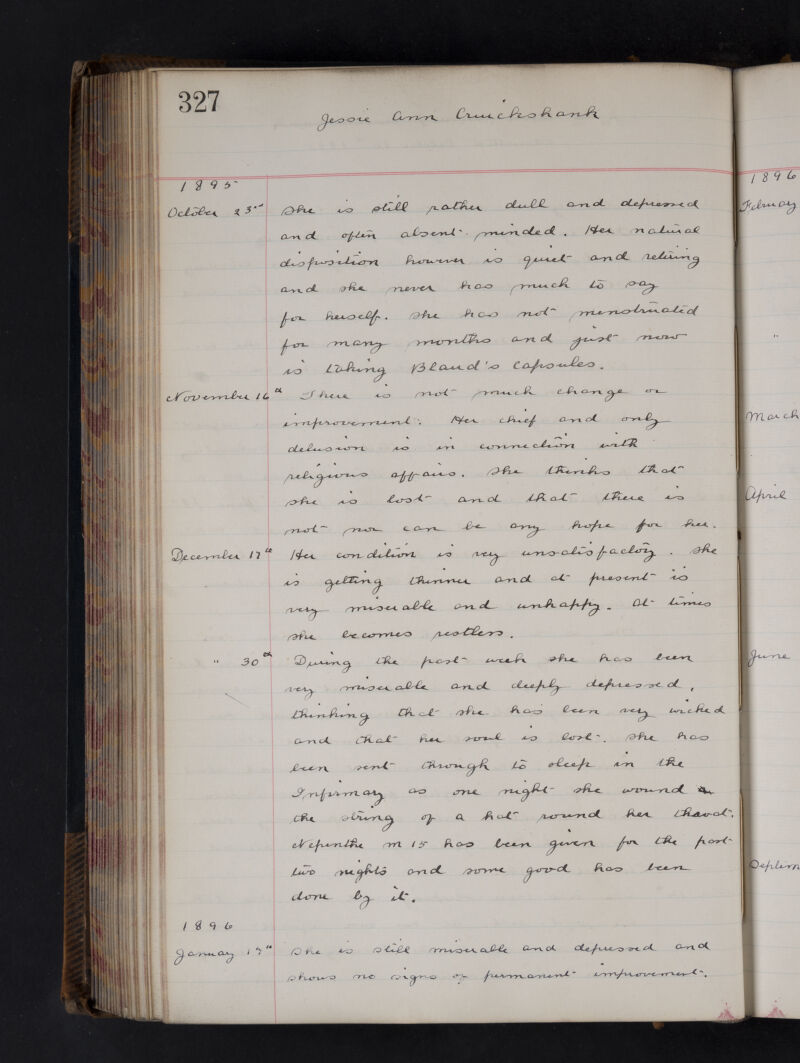 327
Jessie Ann Cruickshank
1895
October 23rd She is still rather dull and depressed
and often absent-minded. Her natural
disposition however is quiet and retiring
and she never has much to say
for herself. She has not menstruated
for many months and just now
is taking Bland's Capsules.
November 16th There is not much change or
improvement. Her chief and only
delusion is in connection with
religious affairs. She thinks that
she is lost and that there is
not nor can be any hope for her.
December 17th Her condition is very unsatisfactory. She
is getting thinner and at present is
very miserable and unhappy. At times
she becomes restless.
" 30th During the past week she has been
very miserable and deeply depressed,
thinking that she has been very wicked
and that her soul is lost. She has
been sent through to sleep in the
Infirmary as one night she wound
the string of a hat round her thraot.
Nepenthe m 15 has been given for the past
two nights and some good has been
done by it.
1896
January 17th She is still miserable and depressed and
shows no signs of permanent improvement.
1896
February
"
March
April
June
Septem